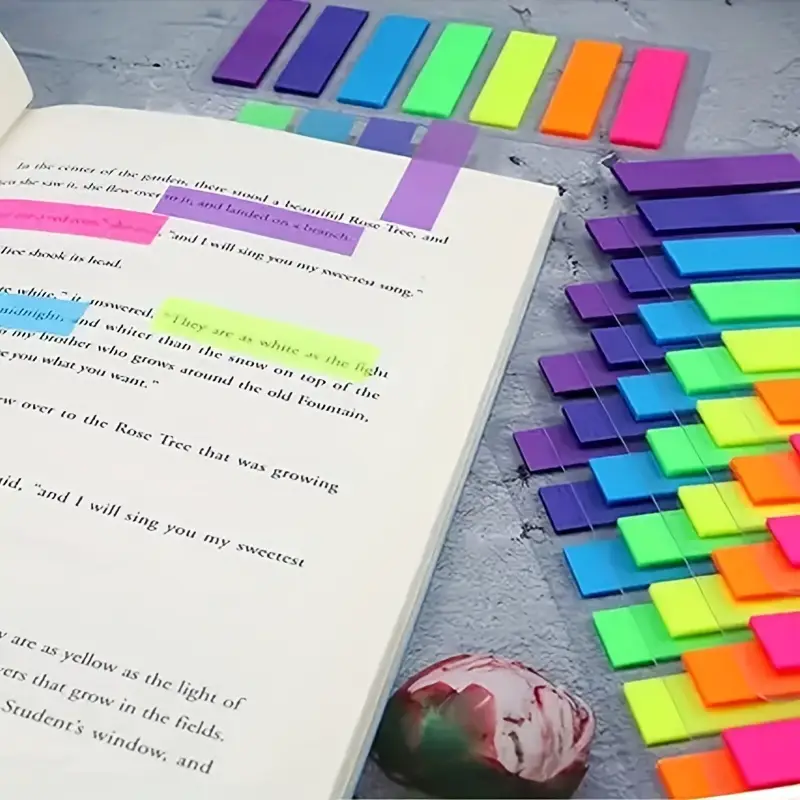 In the center of the garden, there stood a beautiful Rose Tree, and
she saw it, she flew over to it, and landed on a branch.
"and I will sing you my sweetest song."
Tree shook its head.
are white," it answered. "They are as white as the light
midnight, and whiter than the snow on top of the
my brother who grows around the old Fountain,
you what you want."
over to the Rose Tree that was growing
"and I will sing you my sweetest
are as yellow as the light of
that grow in the fields.
Student's window, and